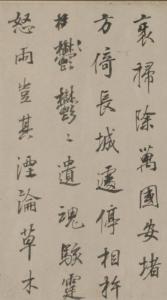 掃除萬國安堵
方倚長城遽停相杵
鬱鬱〻遺魂
怒雨豈其湮淪草木